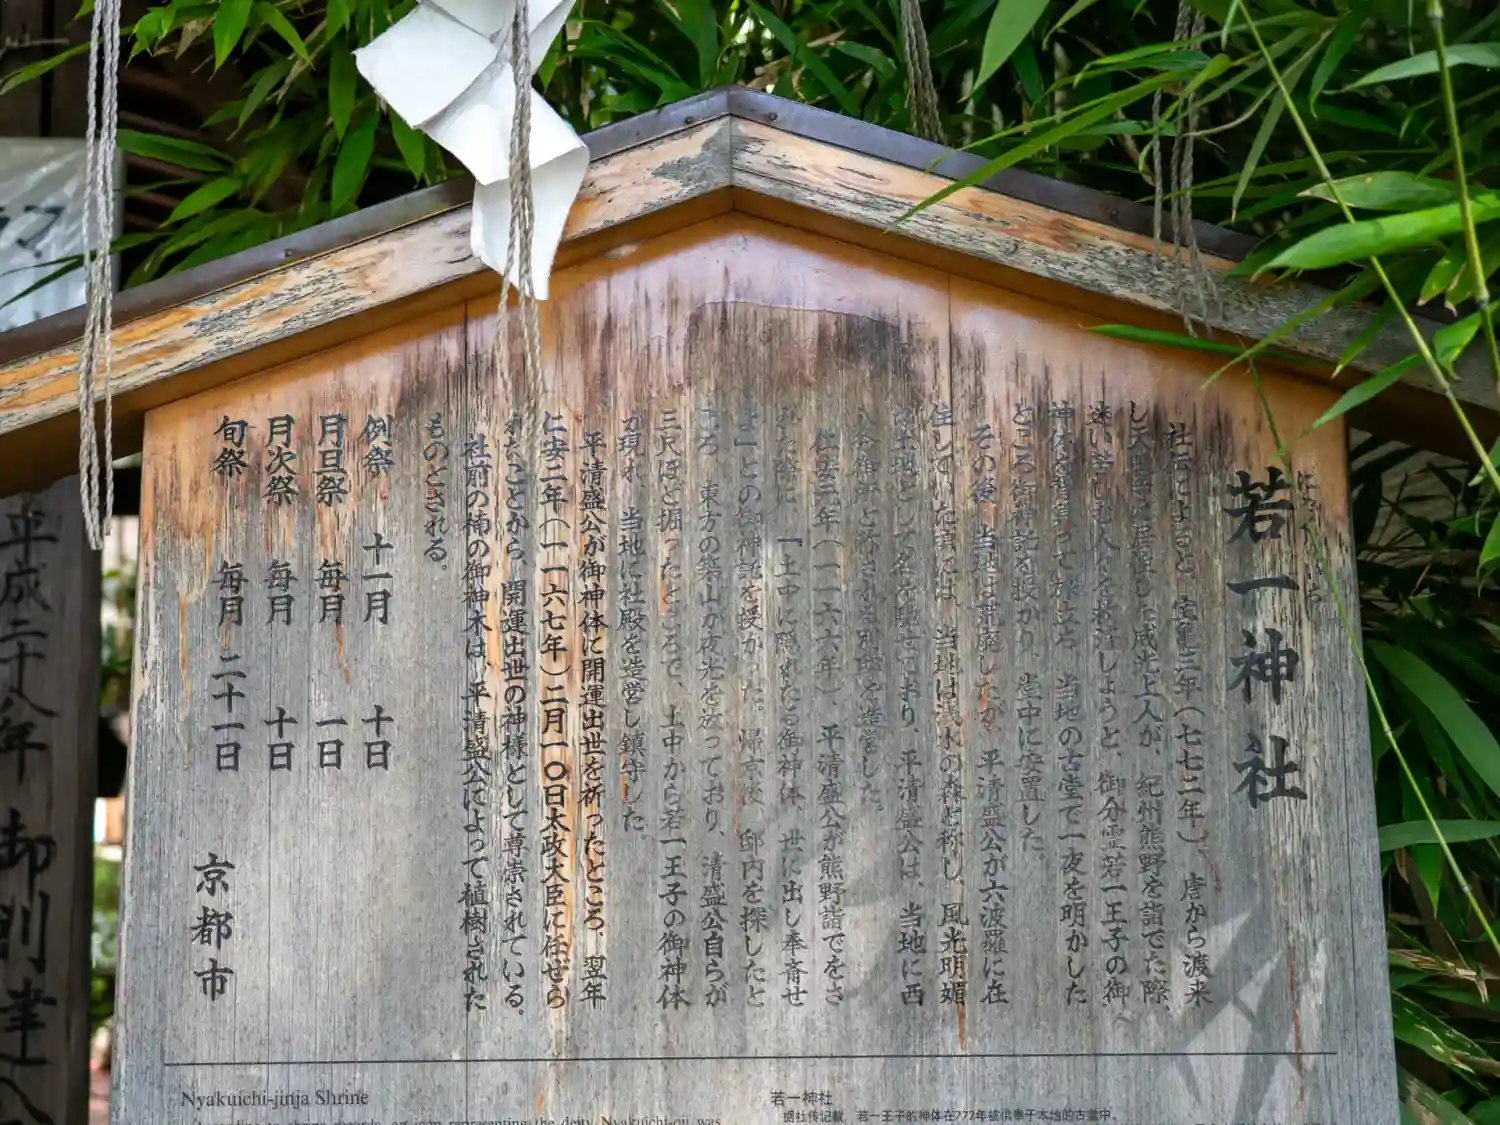 若一神社
社伝によると、宝亀三年(七七二年)、唐から渡来
した 威光上人が、紀州熊野を詣でた際、
迷い苦しむ人々を救済しようと、御分霊若一王子の御
神体を背負って旅立ち、当地の古堂で一夜を明かした
ところ御神託を授かり、堂中に安置した。
その後、当地は荒廃したが、平清盛公が六波羅に在
住していた頃には、当地は浅水の森と称し、風光明媚
な土地として名を馳せており、平清盛公は、当地に西
八条御所と称される別邸を造営した。
仁安元年(一一六六年)、平清盛公が熊野詣でをさ
れた際に、「土中に隠れたる御神体、世に出し奉斎せ
よ」との御神託を授かった。帰京後、邸内を探したと
ころ、東方の築山が夜光を放っており、清盛公自らが
三尺ほど掘ったところで、土中から若一王子の御神体
が現れ、当地に社殿を造営し鎮守した。
平清盛公が御神体に開運出世を祈ったところ、翌年
仁安二年(一一六七年)二月一〇日太政大臣に任ぜら
れたことから、開運出世の神様として尊崇されている。
社前の楠の御神木は、平清盛公によって植樹された
ものとされる。
例祭 十一月 十日
月旦祭 毎月 一日
月次祭 毎月 十日
旬祭 毎月 二十一日
京都市
Nyakuichi-jinja Shrine
According to shrine records, an icon representing the deity Nyakuichi-oji was
若一神社
据社传记载，若一王子的神体在772年被供奉于本地的古堂中，
平成二十八年